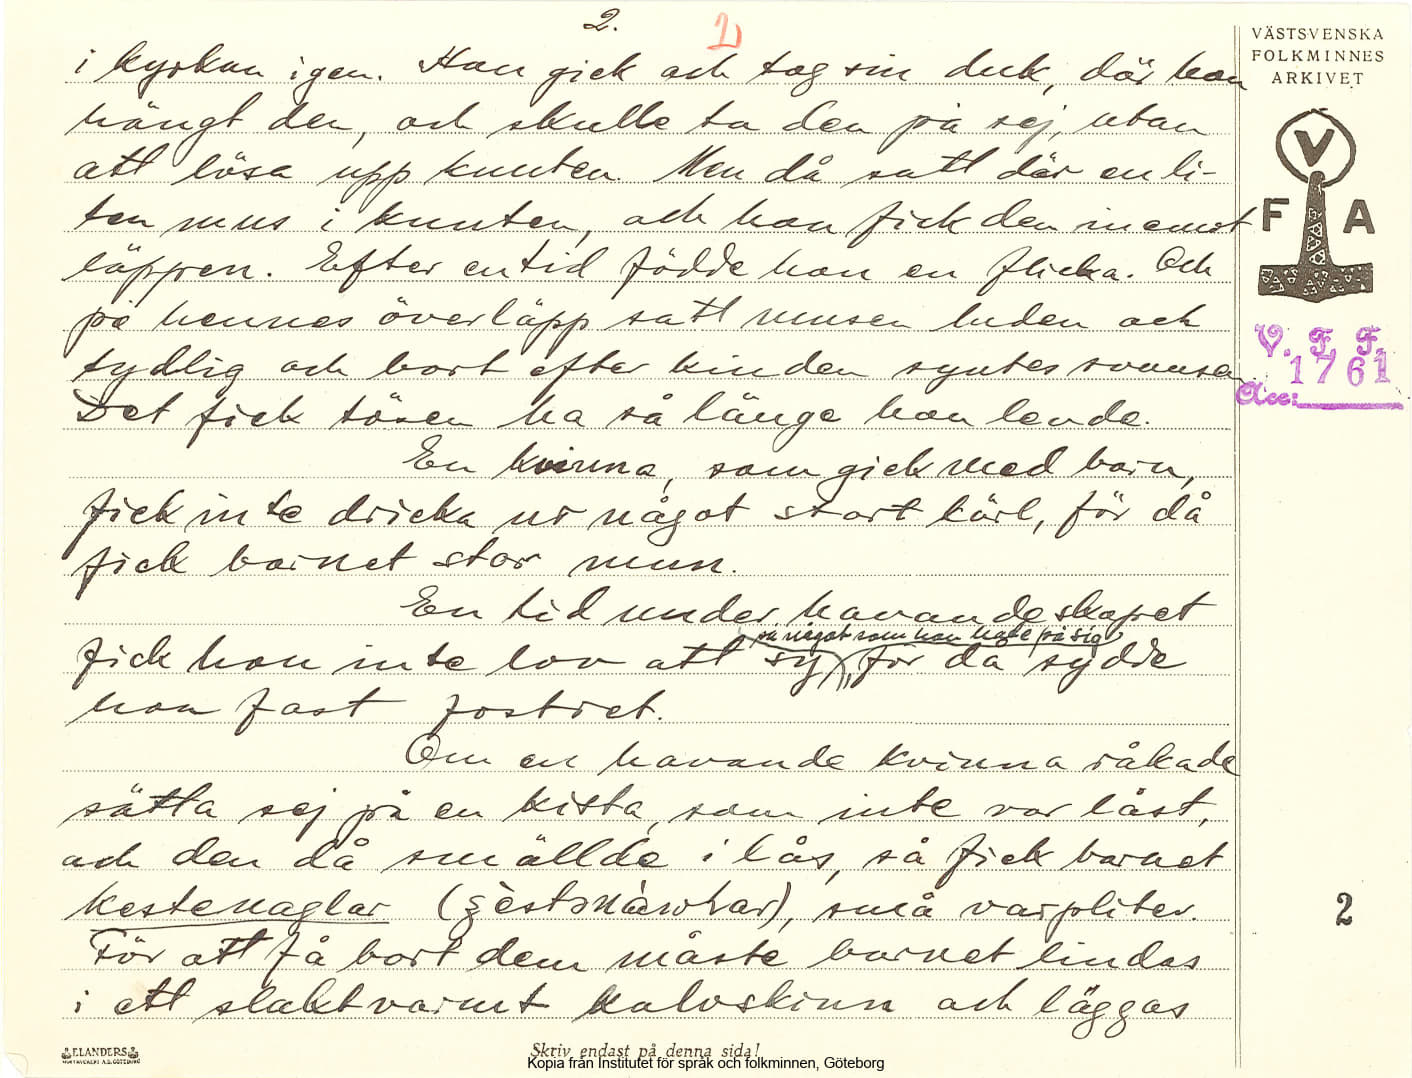 2.
2
i kyrkan igen. Hon gick och tog sin duk, där hon
hängt den, och skulle ta den på sej, utan
att lösa upp knuten. Men då satt där en li-
ten mus i knuten, och hon fick den inemot
läppen. Efter en tid födde hon en flicka. Och
på hennes överläpp satt musen luden och
tydlig och bort efter kinden syntes svansen.
Det fick tösen ha så länge hon levde.
En kvinna, som gick med barn,
fick inte dricka ur något stort kärl, för då
fick barnet stor mun.
En tid under havandeskapet
på något som hon hade på sig
fick hon inte lov att sy, för då sydde
hon fast fostret.
Om en havande kvinna råkade
sätta sej på en kista, som inte var låst,
och den då smällde i lås, så fick barnet
kestenaglar, små varpliter.
För att få bort dem måste barnet lindas
i ett slaktvarmt kalvskinn och läggas
VÄSTSVENSKA
FOLKMINNES
ARKIVET
V
F A
V. F. F.
1761
Acc:
2
ELANDERS
Skriv endast på denna sida!
Kopia från Institutet för språk och folkminnen, Göteborg